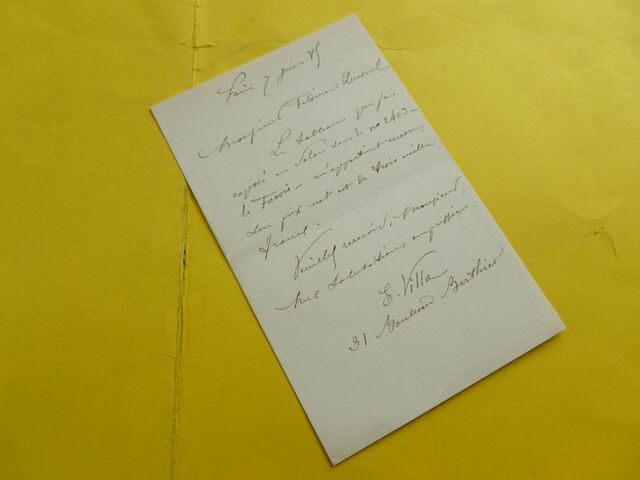 Paris 7 juin 85
Monsieur
Le tableau que j'ai
exposé au Salon sous le no 2403 -
le Favori - m'appartient encore,
son prix net est de trois mille
francs.
Veuillez recevoir, Monsieur,
mes salutations empressées.
E. Villa
31 Boulevard Berthier